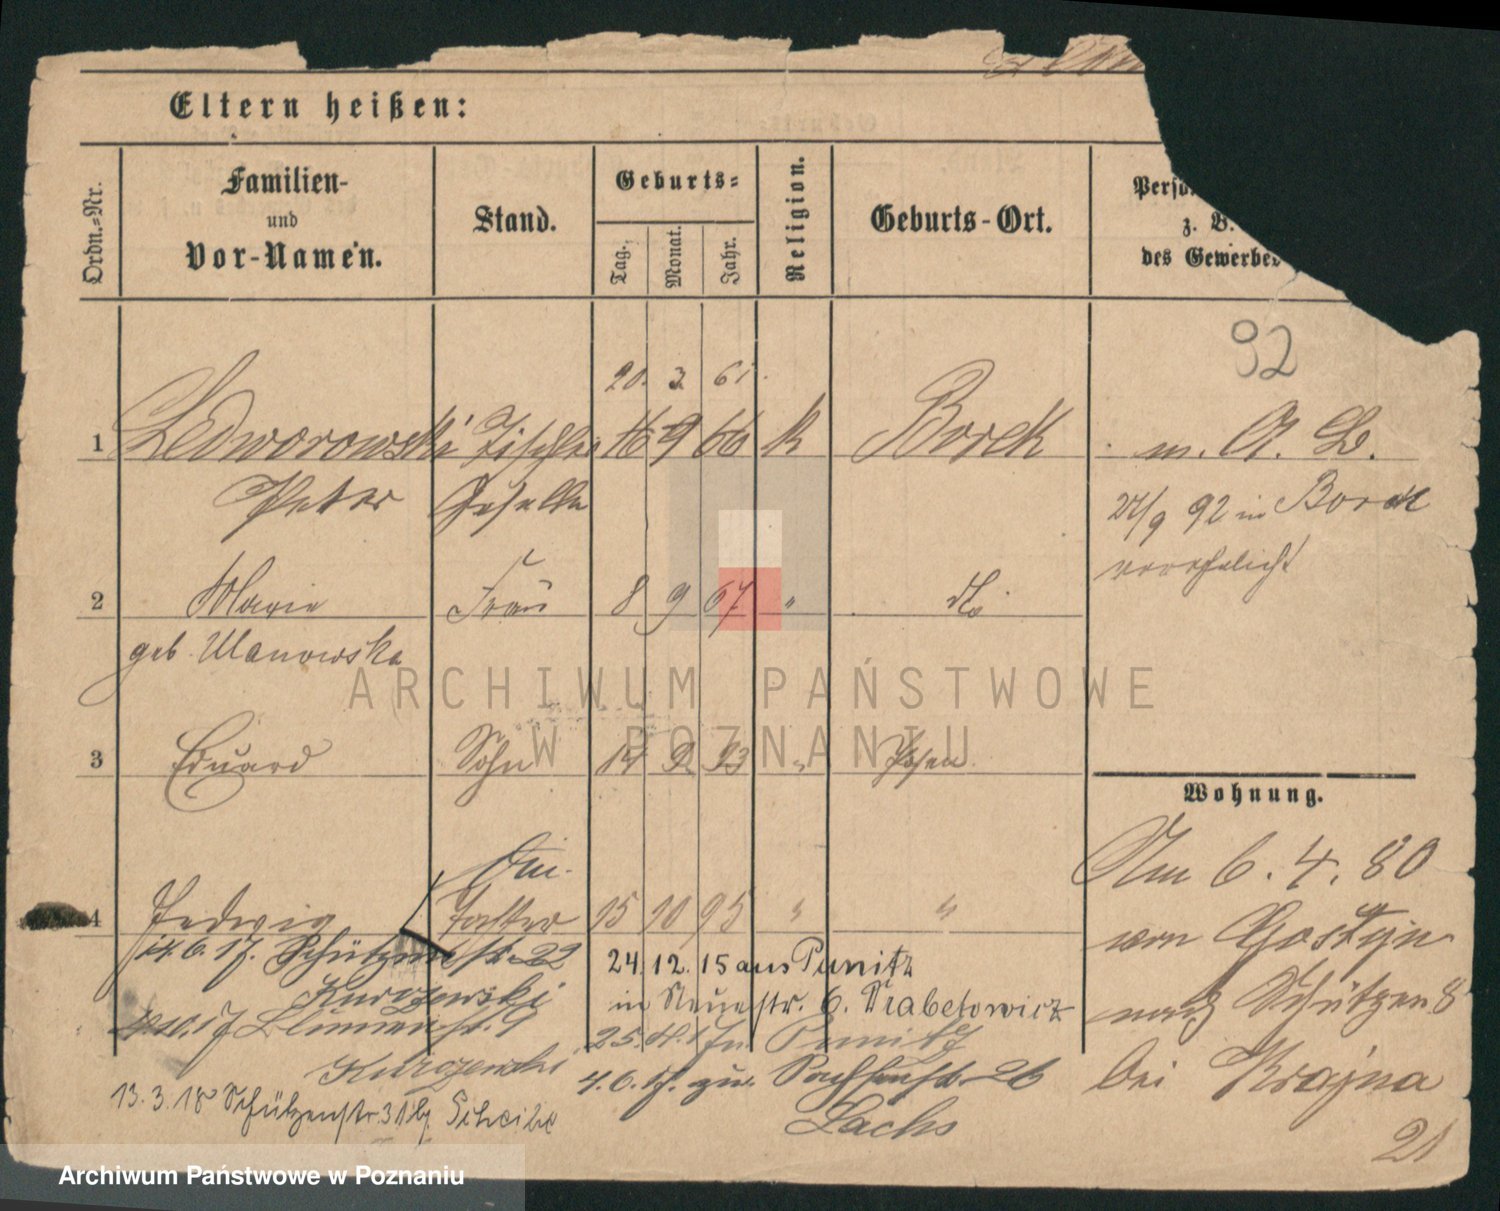 Eltern heißen:
Ordn.=Nr.
Familien-
und
Vor-Namen.
Stand.
Geburts=
Tag.
Monat.
Jahr.
Religion.
Geburts-Ort.
Perso
z. B.
des Gewerbes
92
20. 3 61.
1 Ledworowski Tischler 16 9 66 k Borek m. A. L.
Peter Geselle
27/9 92 in Borek
verehelicht
2 Marie Frau 8 9 67 " do
geb. Ulanowska
3 Eduard Sohn 14 9 93 " Posen
Wohnung.
Am 6. 4. 80
4 Hedwig Tochter 15 10 95 " "
von Gostyn
14.6.17. Schützenstr. 22
24.12.15 aus Punitz
Kurozewski
in Neuestr. 6. Wrabetowicz
nach Schützen 8
10.17 Blumenstr. 9
25. 4. 17 n. Punitz
Kurozewski
4.6.17. zu. 26
bei Krajna
13.3.18 Schützenstr. 31 b/ Scheibe
Lachs
21
ARCHIWUM PAŃSTWOWE
W POZNANIU
Archiwum Państwowe w Poznaniu